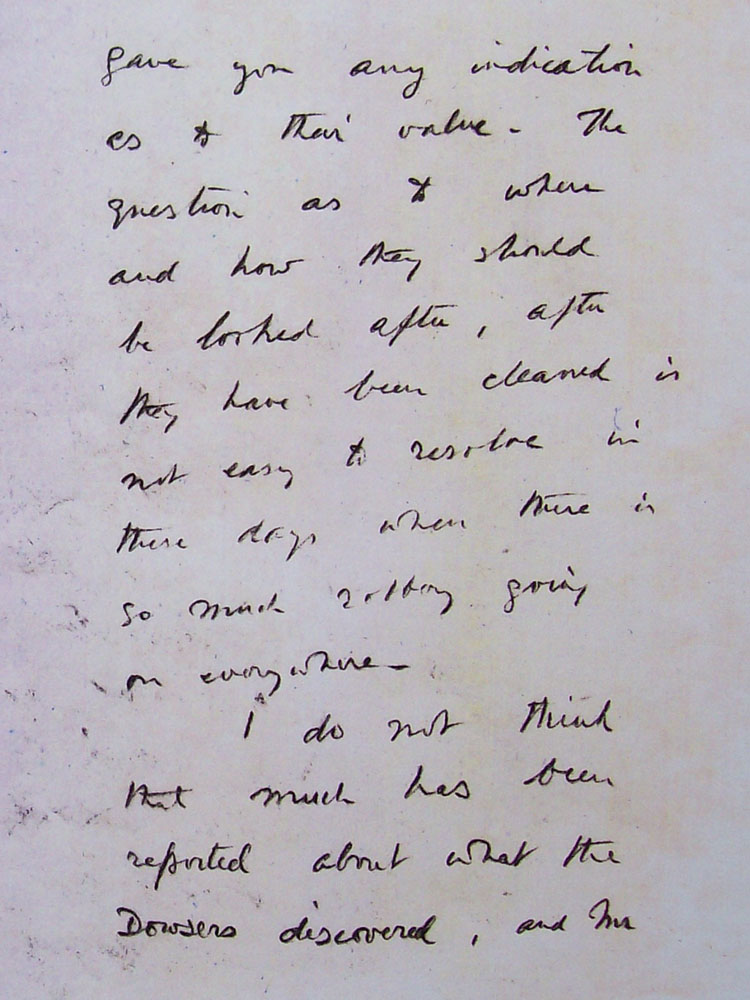 gave you any indication
as to their value - The
question as to where
and how they should
be looked after, after
they have been cleaned is
not easy to resolve in
these days when there is
so much robbery going
on everywhere -
I do not think
that much has been
reported about what the
Dowsers discovered, and Mr